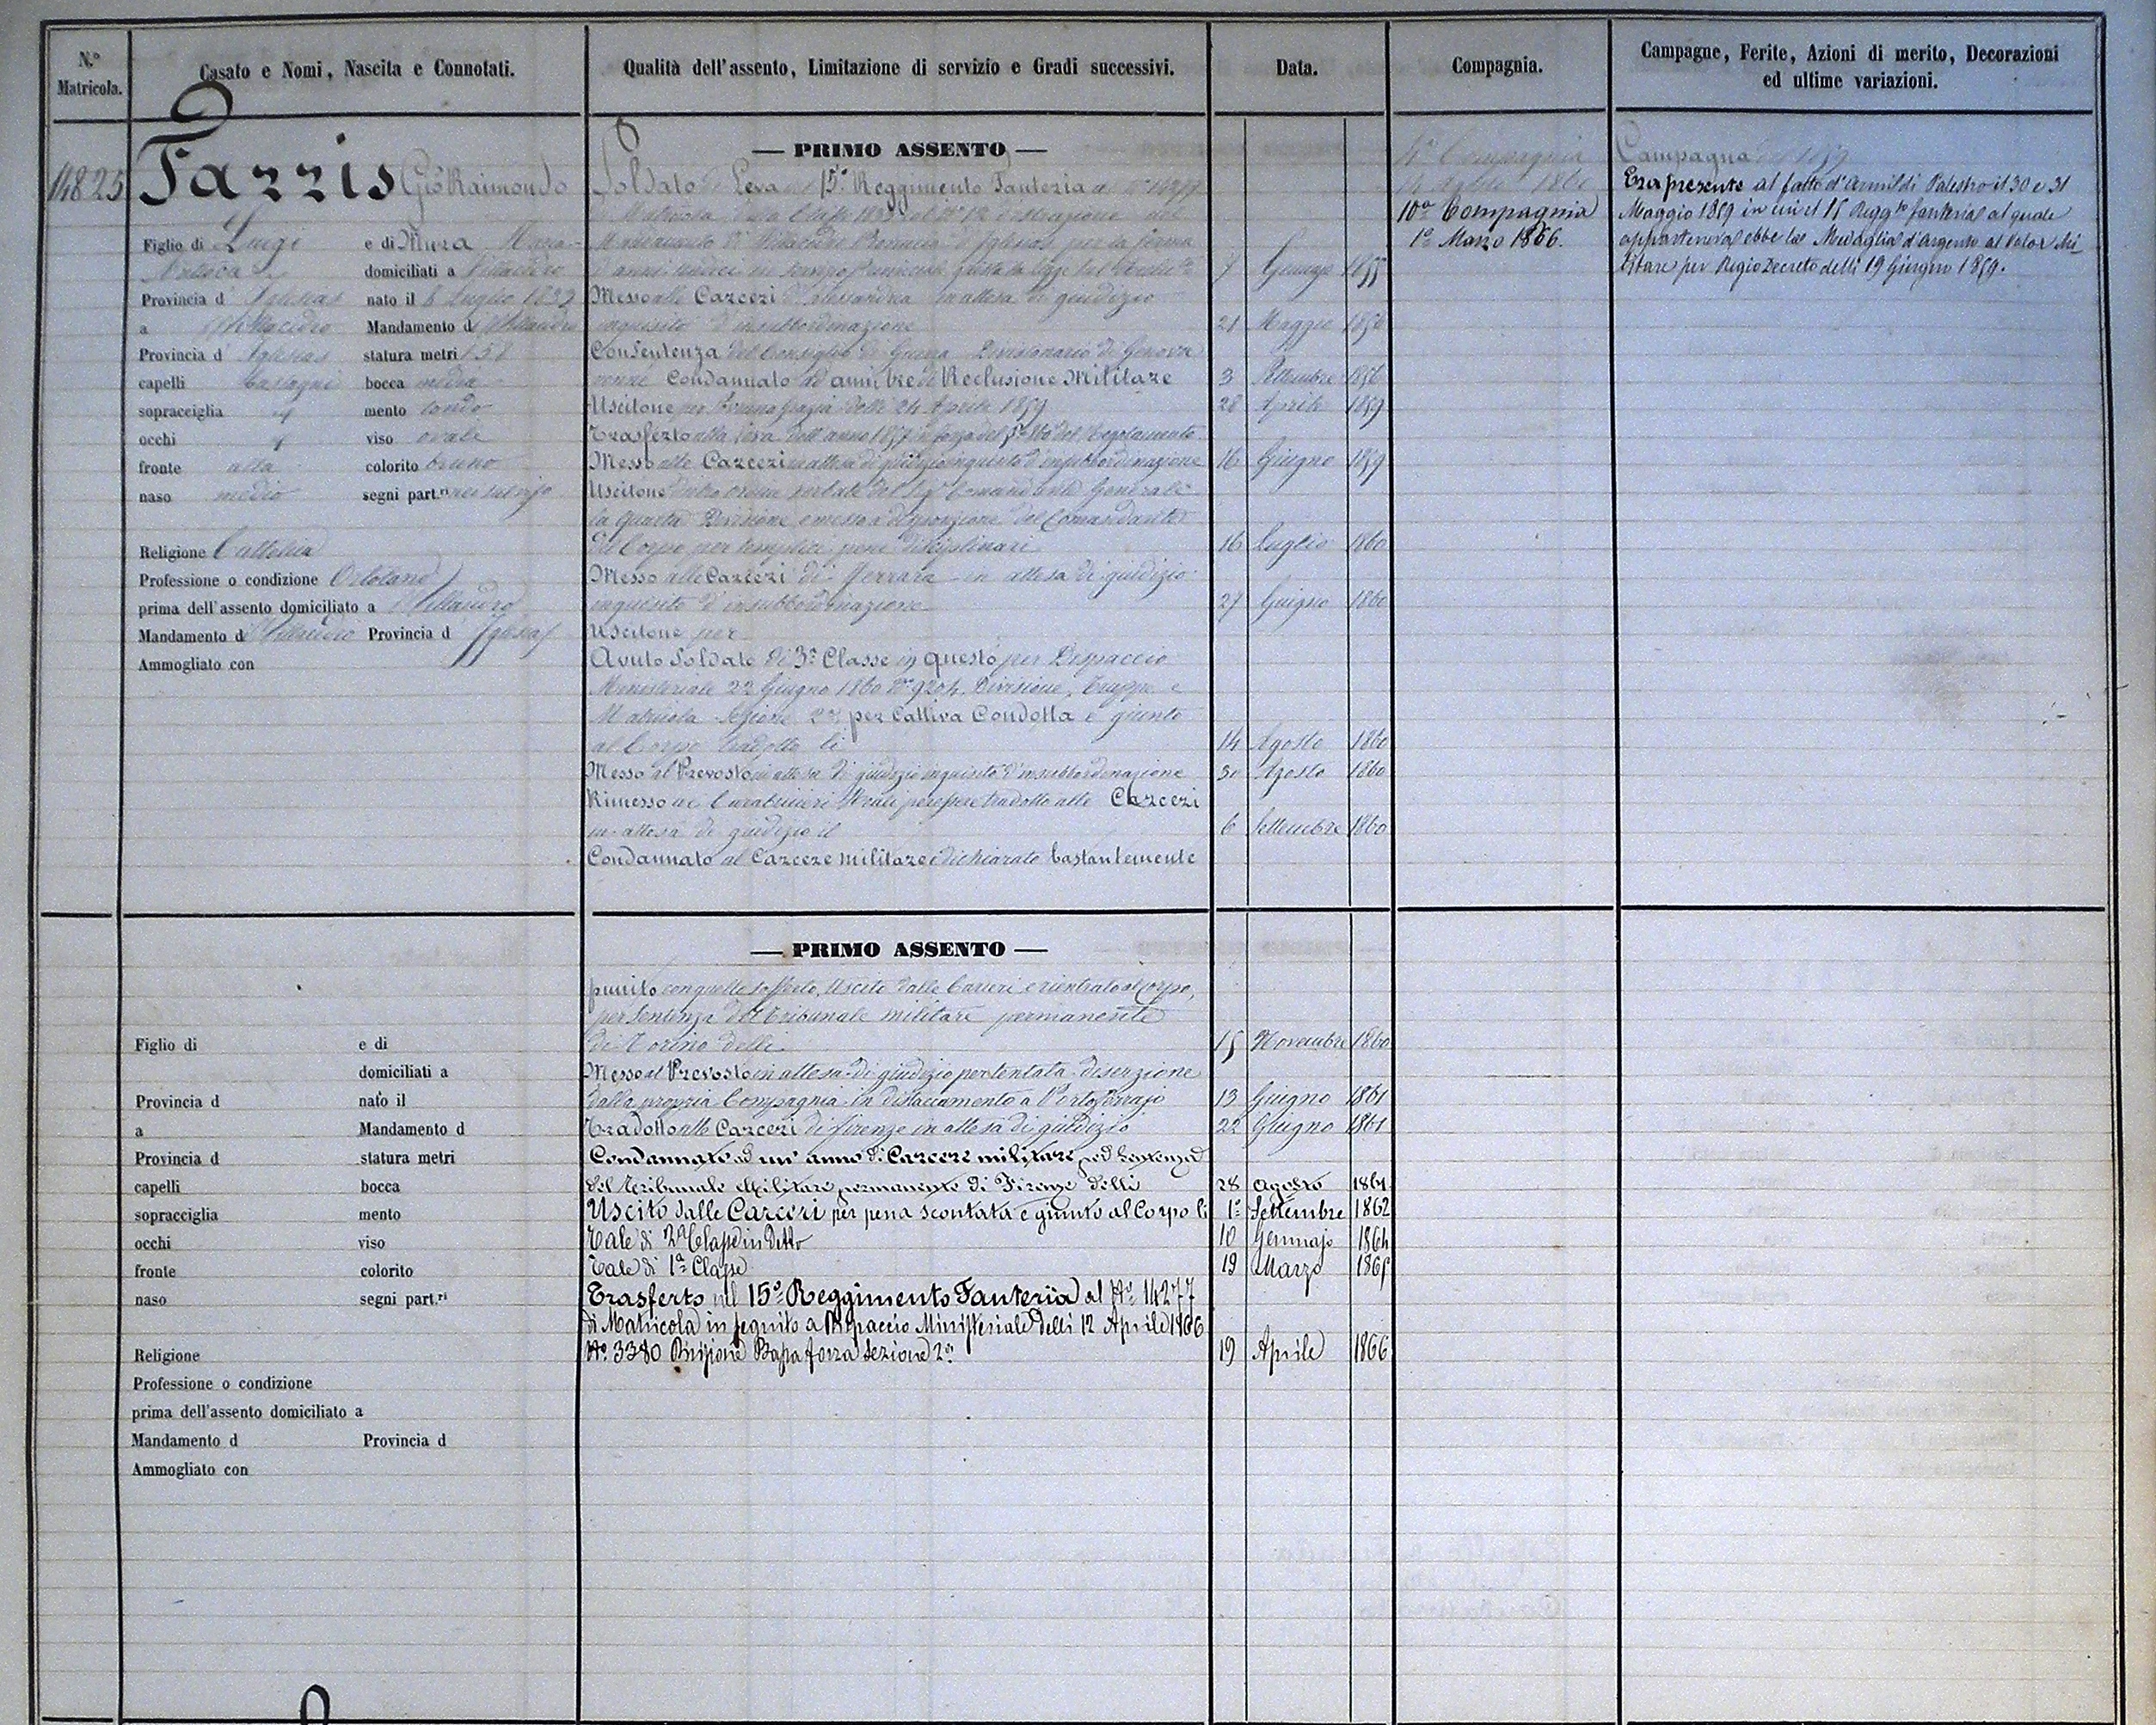 N.º Matricola.
Casato e Nomi, Nascita e Connotati.
Qualità dell'assento, Limitazione di servizio e Gradi successivi.
Data.
Compagnia.
Campagne, Ferite, Azioni di merito, Decorazioni
ed ultime variazioni.
14825
Fazzis Gio Raimondo
Figlio di Luigi e di Mura Maria
domiciliati a Villacidro
Provincia d' Iglesias nato il 6 Luglio 1833
a Villacidro Mandamento di Villacidro
Provincia d' Iglesias statura metri 1 58
capelli castagni bocca media
sopracciglia mento tondo
occhi viso ovale
fronte alta colorito bruno
naso medio segni part.ri
Religione Cattolica
Professione o condizione Ortolano
prima dell'assento domiciliato a Villacidro
Mandamento di Villacidro Provincia d' Iglesias
Ammogliato con
— PRIMO ASSENTO —
Soldato di Leva nel 15º Reggimento Fanteria al Nº 14277
di Matricola
Mandamento di Villacidro Provincia d' Iglesias per la ferma
d'anni undici 7 1855
Messo alle Carceri d'Alessandria in attesa di giudizio
inquisito d'insubbordinazione 21 Maggio 1856
Con Sentenza del Consiglio di Guerra Divisionario di Genova
venne Condannato ad anni tre di Reclusione Militare 3 Settembre 1856
Uscitone per Sovrana Grazia delli 24 Aprile 1859 28 Aprile 1859
Trasferto alla leva dell'anno 1857 in forza del § 860 del Regolamento
Messo alle Carceri in attesa di giudizio inquisito d'insubbordinazione 16 Giugno 1859
Uscitone dietro ordine verbale del Sigr Comandante Generale
la Quarta Divisione, e messo a disposizione del Comandante
del Corpo per semplici pene disciplinari 16 Luglio 1860
Messo alle Carceri di Ferrara in attesa di giudizio
inquisito d'insubbordinazione 27 Giugno 1860
Uscitone per
Avuto Soldato di 3ª Classe in questo per Dispaccio
Ministeriale 22 Giugno 1860 Nº 9204. Divisione, Truppe e
Matricola Sezione 2ª per Cattiva Condotta e giunto
al Corpo tradotto li 14 Agosto 1860
Messo al Prevosto in attesa di giudizio inquisito d'insubbordinazione 30 Agosto 1860
Rimesso ai Carabinieri Reali per essere tradotto alle Carceri
in attesa di giudizio il 6 Settembre 1860
Condannato al Carcere militare e dichiarato bastantemente
1860
10ª Compagnia
1º Marzo 1866.
Campagna del 1859
Era presente al fatto d'armi di Palestro il 30 e 31
Maggio 1859 in cui il 15 Reggto fanteria al quale
apparteneva ebbe la Medaglia d'Argento al Valor Mi-
litare per Regio Decreto delli 19 Giugno 1859.
— PRIMO ASSENTO —
punito con quello sofferto, Uscito dalle Carceri e rientrato al Corpo,
per Sentenza del Tribunale militare permanente
di Torino delli 15 Novembre 1860
Messo al Prevosto in attesa di giudizio per tentata diserzione
dalla propria Compagnia in distaccamento a Portoferrajo 13 Giugno 1861
Tradotto alle Carceri di Firenze in attesa di giudizio 22 Giugno 1861
Condannato ad un' anno di Carcere militare, con Sentenza
del Tribunale Militare permanente di Firenze delli 28 Agosto 1861
Uscito dalle Carceri per pena scontata e giunto al Corpo li 1º Settembre 1862
Tale di 2ª Classe in detto 10 Gennajo 1864
Tale di 1ª Classe 19 Marzo 1865
Trasferto nel 15º Reggimento Fanteria al Nº 14277
di Matricola in seguito a Dispaccio Ministeriale delli 12 Aprile 1866
Nº 3380 Divisione Bassa forza Sezione 2ª 19 Aprile 1866
Figlio di e di
domiciliati a
Provincia d nato il
a Mandamento d
Provincia d statura metri
capelli bocca
sopracciglia mento
occhi viso
fronte colorito
naso segni part.ri
Religione
Professione o condizione
prima dell'assento domiciliato a
Mandamento d Provincia d
Ammogliato con